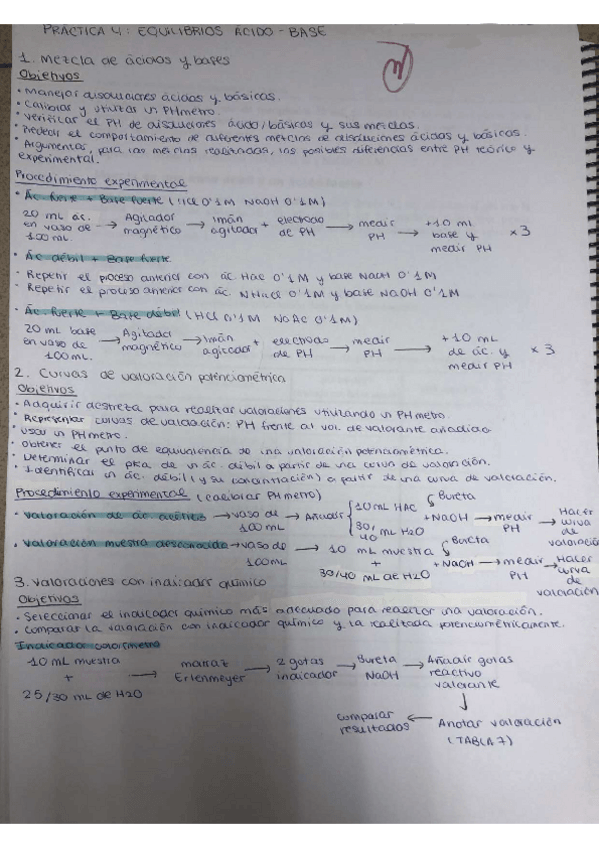 PRÁCTICA 4: EQUILIBRIOS ÁCIDO-BASE
1. Mezcla de ácidos y bases
Objetivos
• Manejar disoluciones ácidas y básicas.
• Calibrar y utilizar un PHmetro.
• Verificar el PH de disoluciones ácido/básicas y sus mezclas.
• Predecir el comportamiento de diferentes mezclas de disoluciones ácidas y básicas.
• Argumentar, para las mezclas realizadas, las posibles diferencias entre PH teórico y
experimental.
Procedimiento experimental
• Ác. fuerte + Base fuerte (HCl 0'1M NaOH 0'1M)
20 mL ác. en vaso de 100 mL → Agitador magnético → Imán agitador + electrodo de PH → medir PH → +10 ml base y medir PH ×3
• Ác débil + Base fuerte
- Repetir el proceso anterior con ác. HAc 0'1M y base NaOH 0'1M
- Repetir el proceso anterior con ác. NH4Cl 0'1M y base NaOH 0'1M
• Ác. fuerte + Base débil (HCl 0'1M NaAc 0'1M)
20 mL base en vaso de 100 mL. → Agitador magnético → Imán agitador + electrodo de PH → medir PH → +10 mL de ác. y medir PH ×3
2. Curvas de valoración potenciométrica
Objetivos
• Adquirir destreza para realizar valoraciones utilizando un PHmetro.
• Representar curvas de valoración: PH frente al vol. de valorante añadido
• Usar un PHmetro.
• Obtener el punto de equivalencia de una valoración potenciométrica.
• Determinar el pKa de un ác. débil a partir de una curva de valoración.
• Identificar un ác. débil (y su concentración) a partir de una curva de valoración.
Procedimiento experimental (calibrar PHmetro)
• Valoración de ác. acético → vaso de 100mL → Añadir { 10mL HAC 30/40 mL H2O + NaOH Bureta → medir PH → Hacer curva de valoración
• Valoración muestra desconocida → vaso de 100mL → 10 mL muestra + 30/40 mL de H2O + NaOH Bureta → medir PH → Hacer curva de valoración
3. Valoraciones con indicador químico
Objetivos
• Seleccionar el indicador químico más adecuado para realizar una valoración.
• Comparar la valoración con indicador químico y la realizada potenciométricamente.
Indicador colorímetro
10 mL muestra + 25/30 mL de H2O → matraz Erlenmeyer → 2 gotas indicador → Bureta NaOH → Añadir gotas reactivo valorante
↓
Anotar valoración (TABLA 7)
← comparar resultados